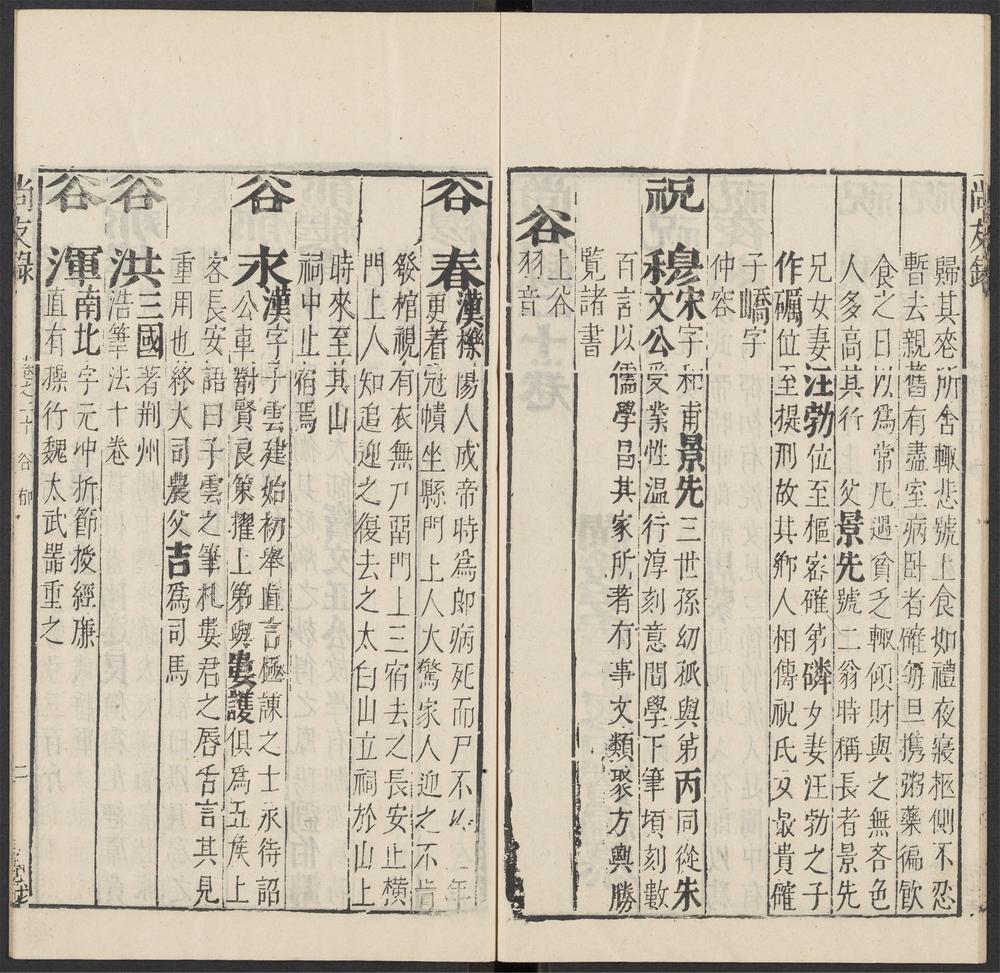 尚友錄
歸其喪所舍輙悲號上食如禮夜寢柩側不忍
暫去親舊有盡室病卧者確每旦携粥藥徧飲
食之日以爲常凡遇貧乏輙傾財與之無吝色
人多高其行 父景先號二翁時稱長者景先
兄女妻汪勃位至樞宻確弟磷女妻汪勃之子
作礪位至提刑故其鄉人相傳祝氏女最貴確
子嶠字
仲容
祝穆宋字和甫景先三世孫幼孤與弟丙同從朱
文公受業性溫行淳刻意問學下筆頃刻數
百言以儒學昌其家所著有事文類聚方輿勝
覽諸書
谷
上谷
羽音
谷春漢櫟陽人成帝時爲郎病死而尸不 年
更着冠幘坐縣門上人大驚家人迎之不肯
發棺視有衣無尸留門上三宿去之長安止橫
門上人知追迎之復去之太白山立祠於山上
時來至其山
祠中止宿焉
谷永漢字子雲建始初舉直言極諫之士永待詔
公車對賢良策擢上第與婁護俱爲五侯上
客長安語曰子雲之筆札婁君之唇舌言其見
重用也終大司農父吉爲司馬
谷洪三國著荆州
浩筆法十卷
谷渾南北字元冲折節授經廉
直有操行魏太武器重之
尚友錄
卷之二十 谷 郁
二